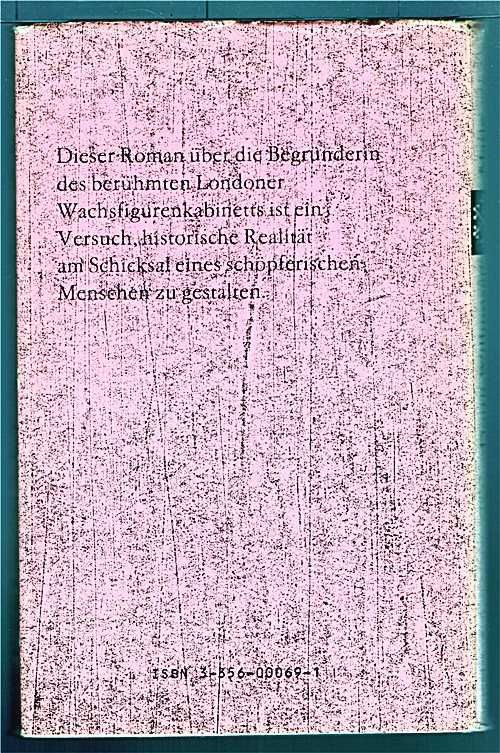 Dieser Roman über die Begründerin
des berühmten Londoner
Wachsfigurenkabinetts ist ein
Versuch, historische Realität
am Schicksal eines schöpferischen
Menschen zu gestalten.
ISBN 3-356-00069-1